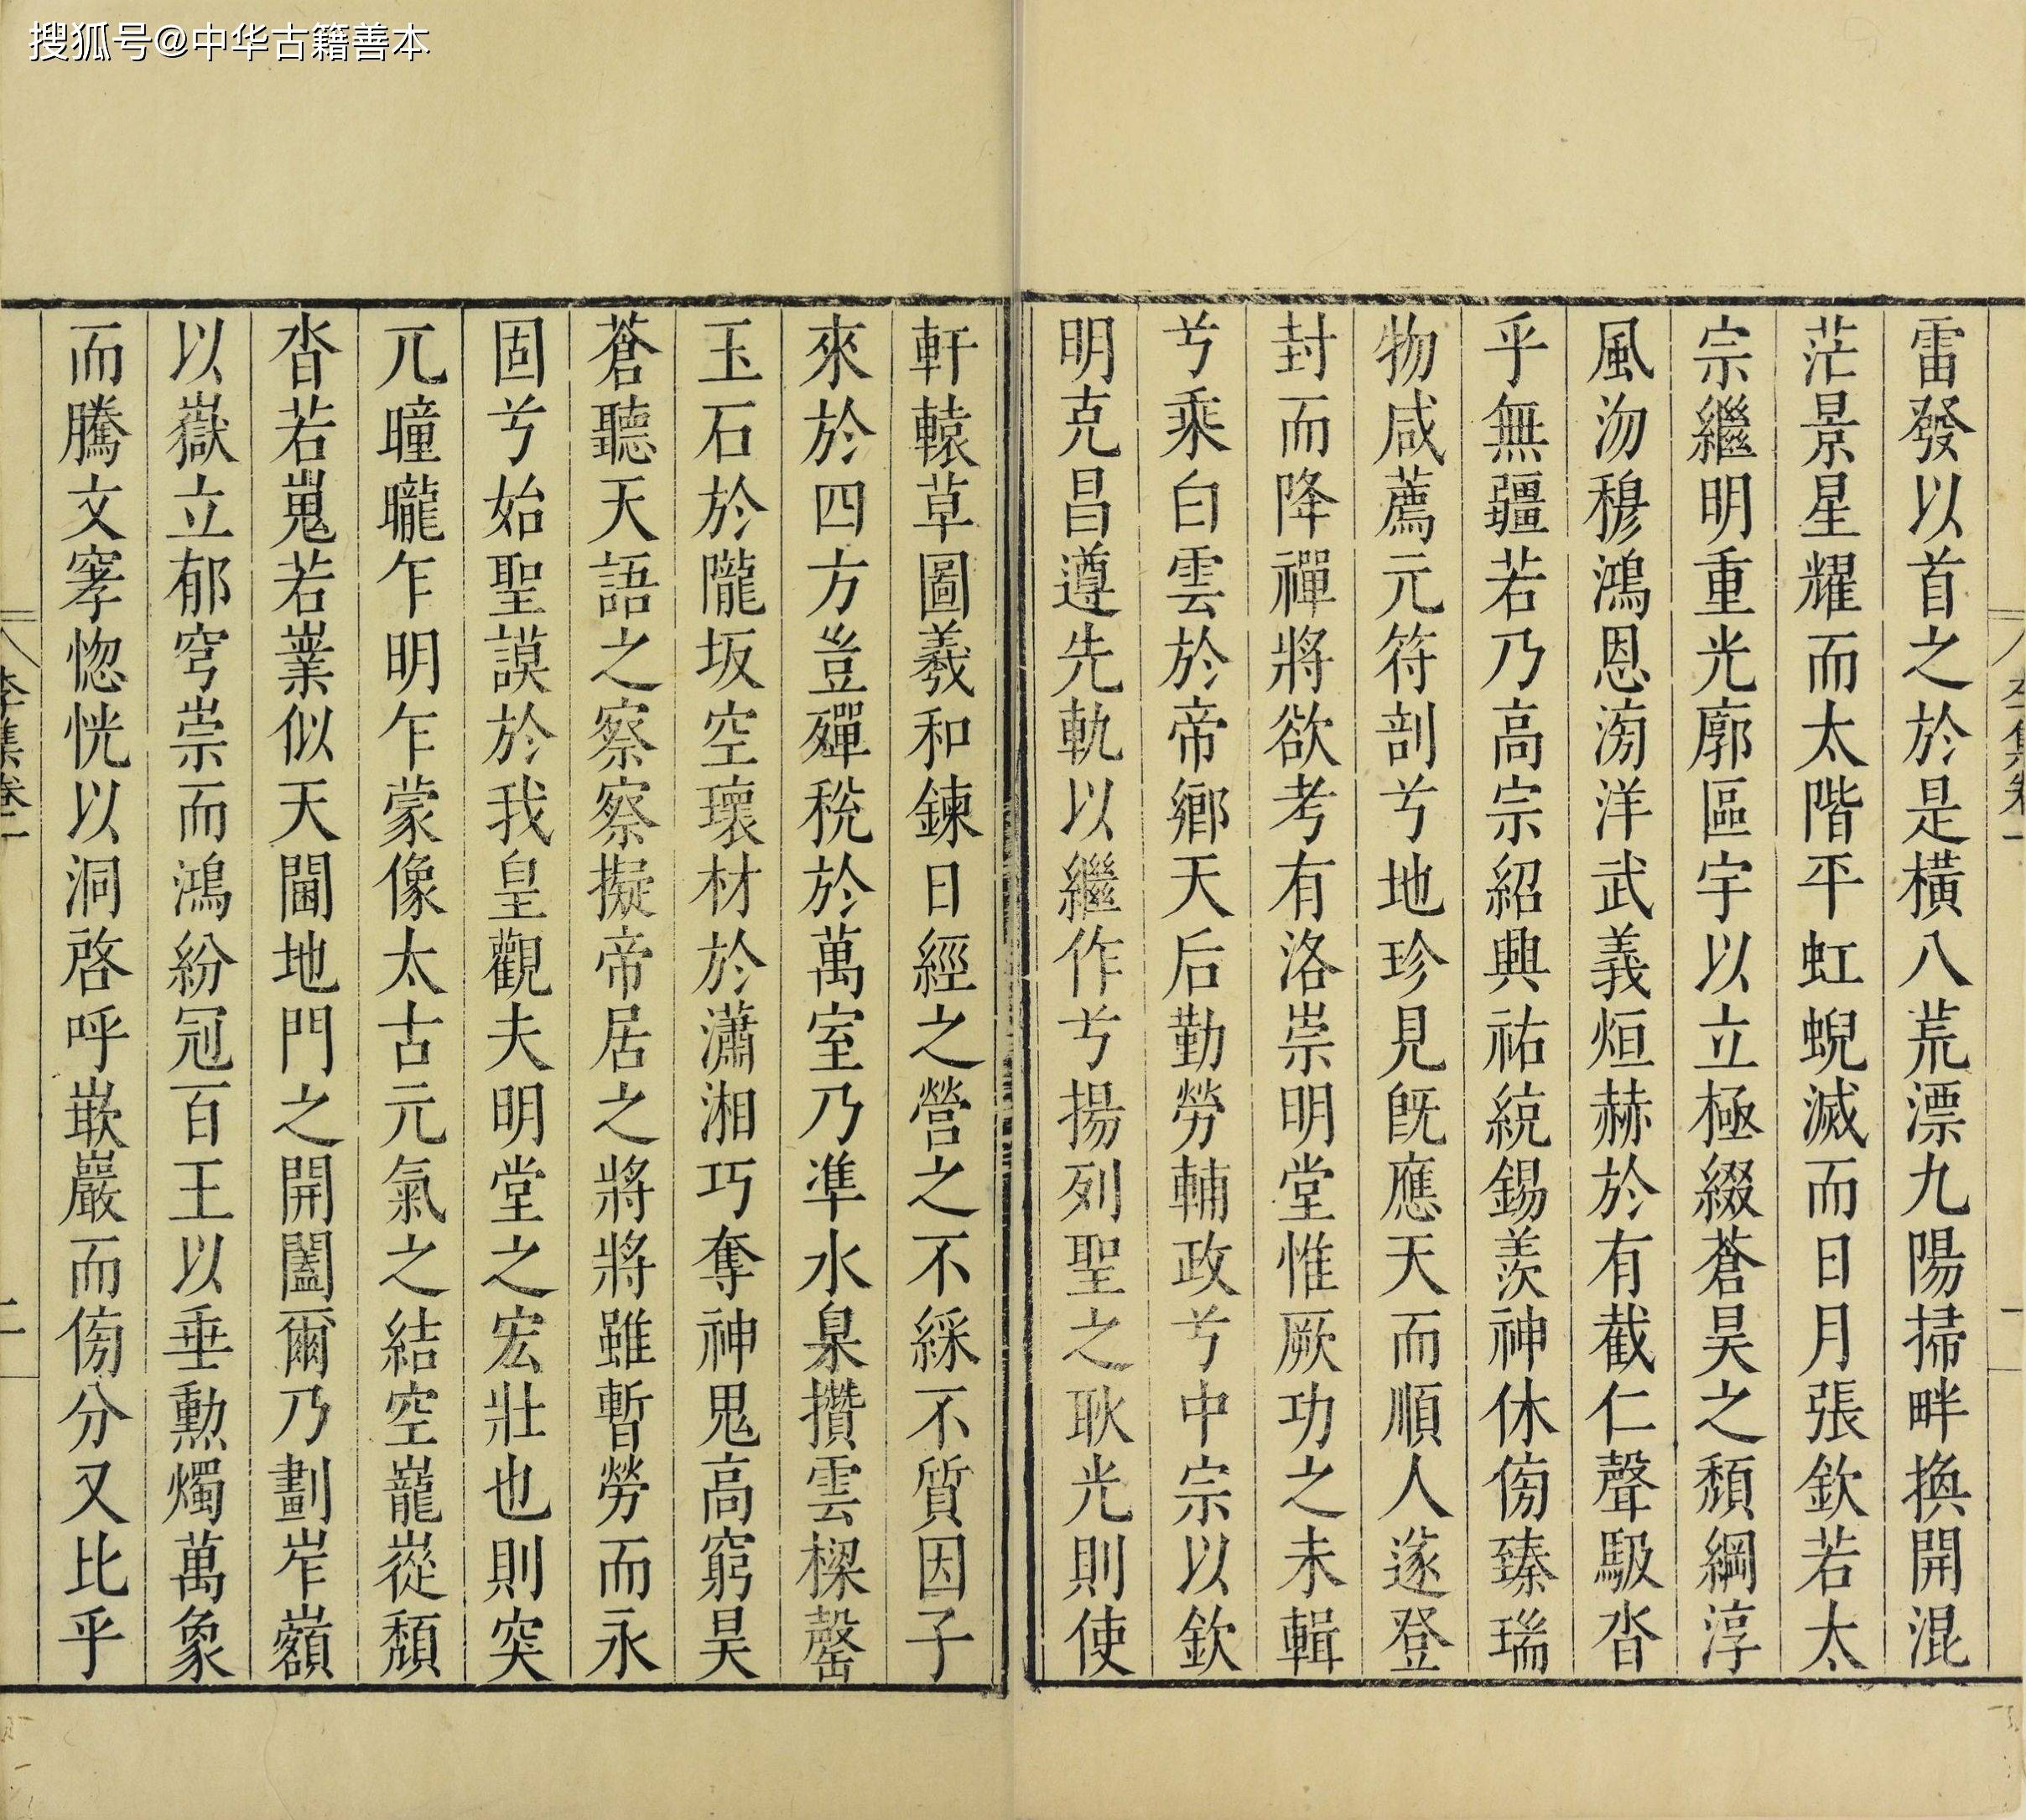 搜狐号@中华古籍善本
雷發以首之於是橫八荒漂九陽掃畔換開混
茫景星耀而太階平虹蜺滅而日月張欽若太
宗繼明重光廓區宇以立極綴蒼昊之頹綱淳
風沕穆鴻恩滂洋武義烜赫於有截仁聲馺沓
乎無疆若乃高宗紹興祐統錫羨神休傍臻瑞
物咸薦元符剖兮地珍見既應天而順人遂登
封而降禪將欲考有洛崇明堂惟厥功之未輯
兮乘白雲於帝鄉天后勤勞輔政兮中宗以欽
明克昌遵先軌以繼作兮揚列聖之耿光則使
軒轅草圖羲和鍊日經之營之不綵不質因子
來於四方豈殫稅於萬室乃準水臬攢雲樑罄
玉石於隴坂空瓌材於瀟湘巧奪神鬼高窮昊
蒼聽天語之察察擬帝居之將將雖暫勞而永
固兮始聖謨於我皇觀夫明堂之宏壯也則突
兀曈曨乍明乍蒙像太古元氣之結空巃嵸頹
沓若嵬若嶪似天閫地門之開闔爾乃劃岝嶺
以嶽立郁穹崇而鴻紛冠百王以垂勳燭萬象
而騰文窙惚恍以洞啓呼嵌巖而傍分又比乎
李集卷一
二